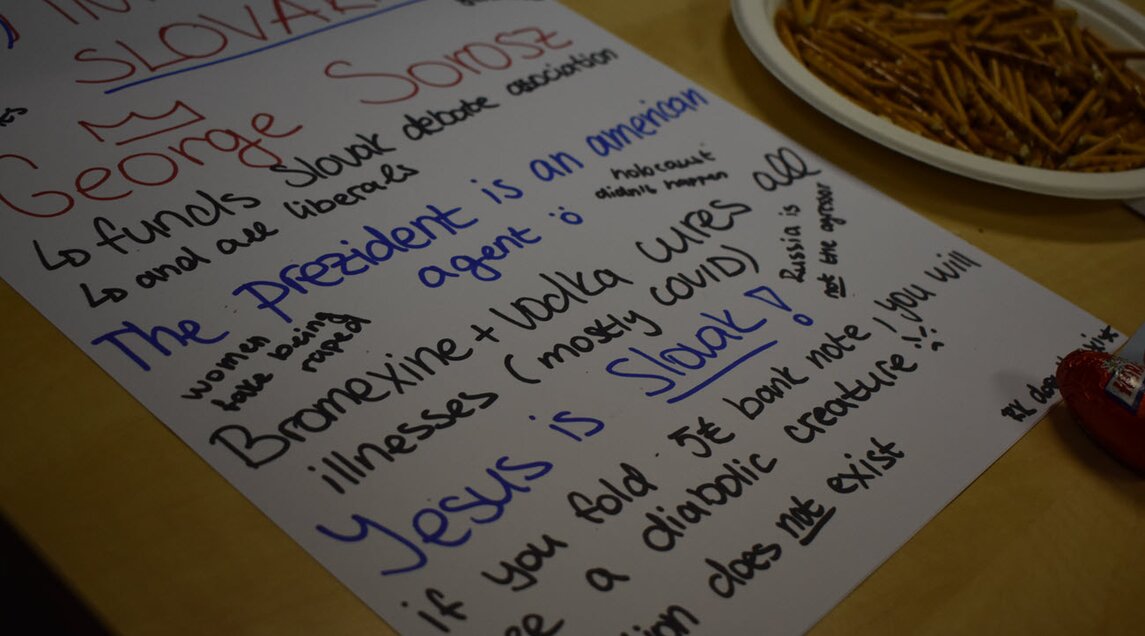 SLOVAK
George Sorosz
↳ funds Slovak debate association
↳ and all liberals
The prezident is an american
agent
holocaust
didn't happen
women
fake being
raped
Bromexine + vodka cures all
illnesses (mostly covid)
Russia is
not the agresor
Yesus is Slovak!
if you fold 5€ bank note, you will
a diabolic creature!!
does not exist